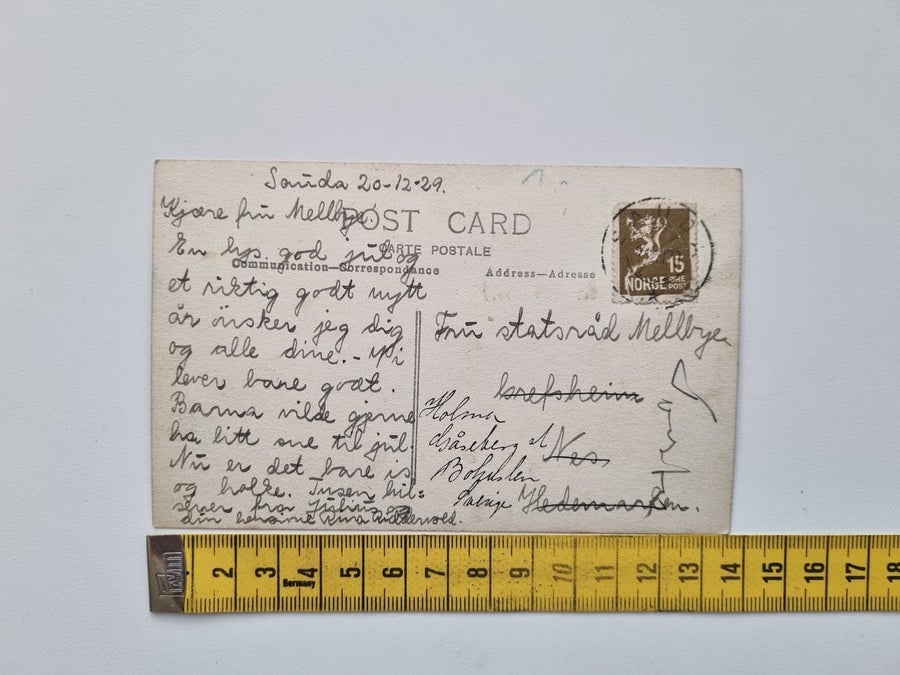 Sauda 20-12-29.
Kjære fru Mellbye!
POST CARD
CARTE POSTALE
En lys god jul og
Communication—Correspondance
Address—Adresse
et riktig godt nytt
år ønsker jeg dig
og alle dine. - Vi
lever bare godt.
Barna vilde gjerne
ha litt sne til jul.
Nu er det bare is
og holke. Tusen hil=
sener fra Julius og
din hengivne
15
ØRE
NORGE POST
Fru statsråd Mellbye
Grefsheim
Holma
Gåseberg
Nes
Sverige Hedemarken.
Germany
2 3 4 5 6 7 8 9 10 11 12 13 14 15 16 17 18